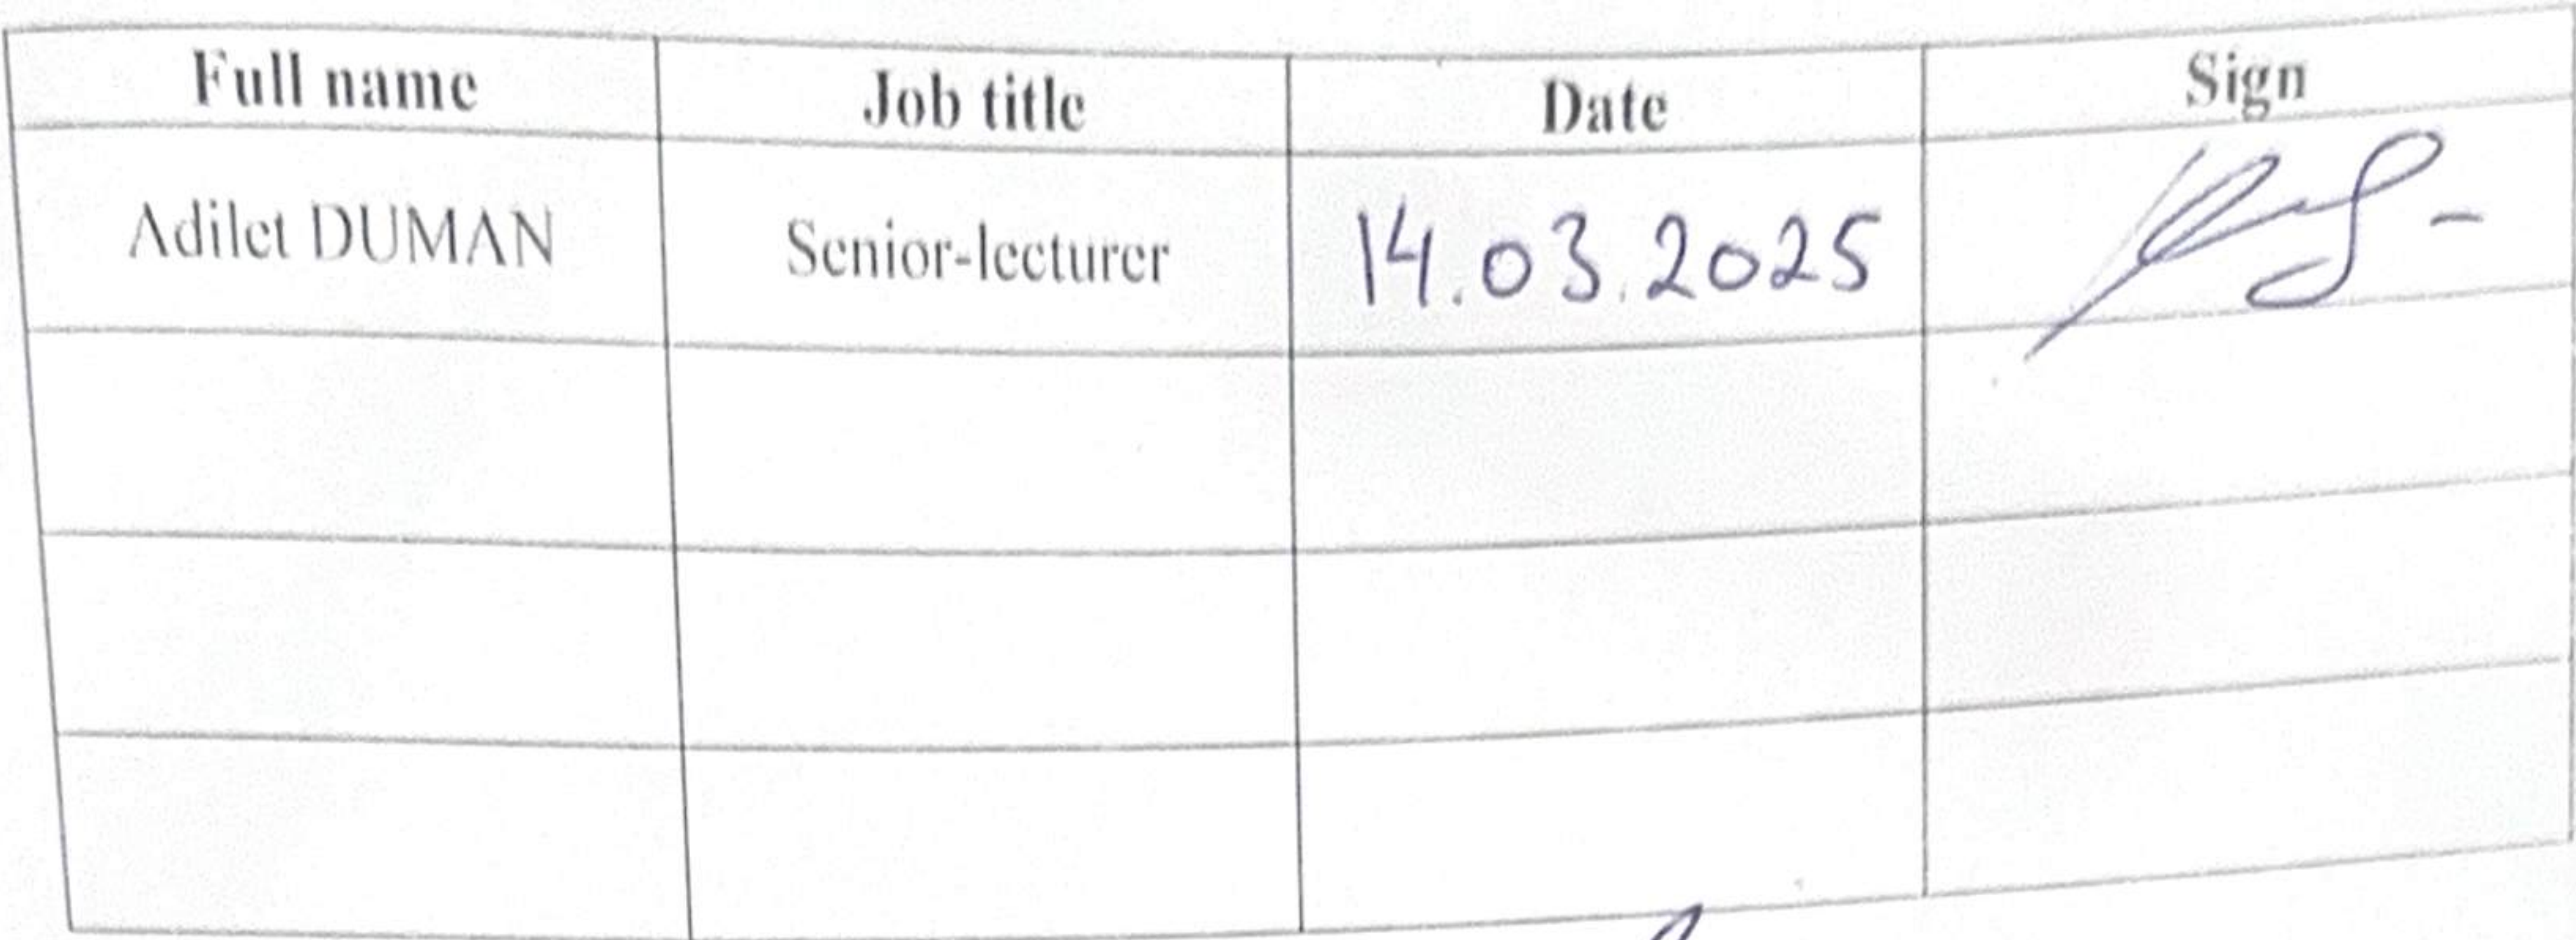 Full name Job title Date Sign
Adilet DUMAN Senior-lecturer 14.03.2025